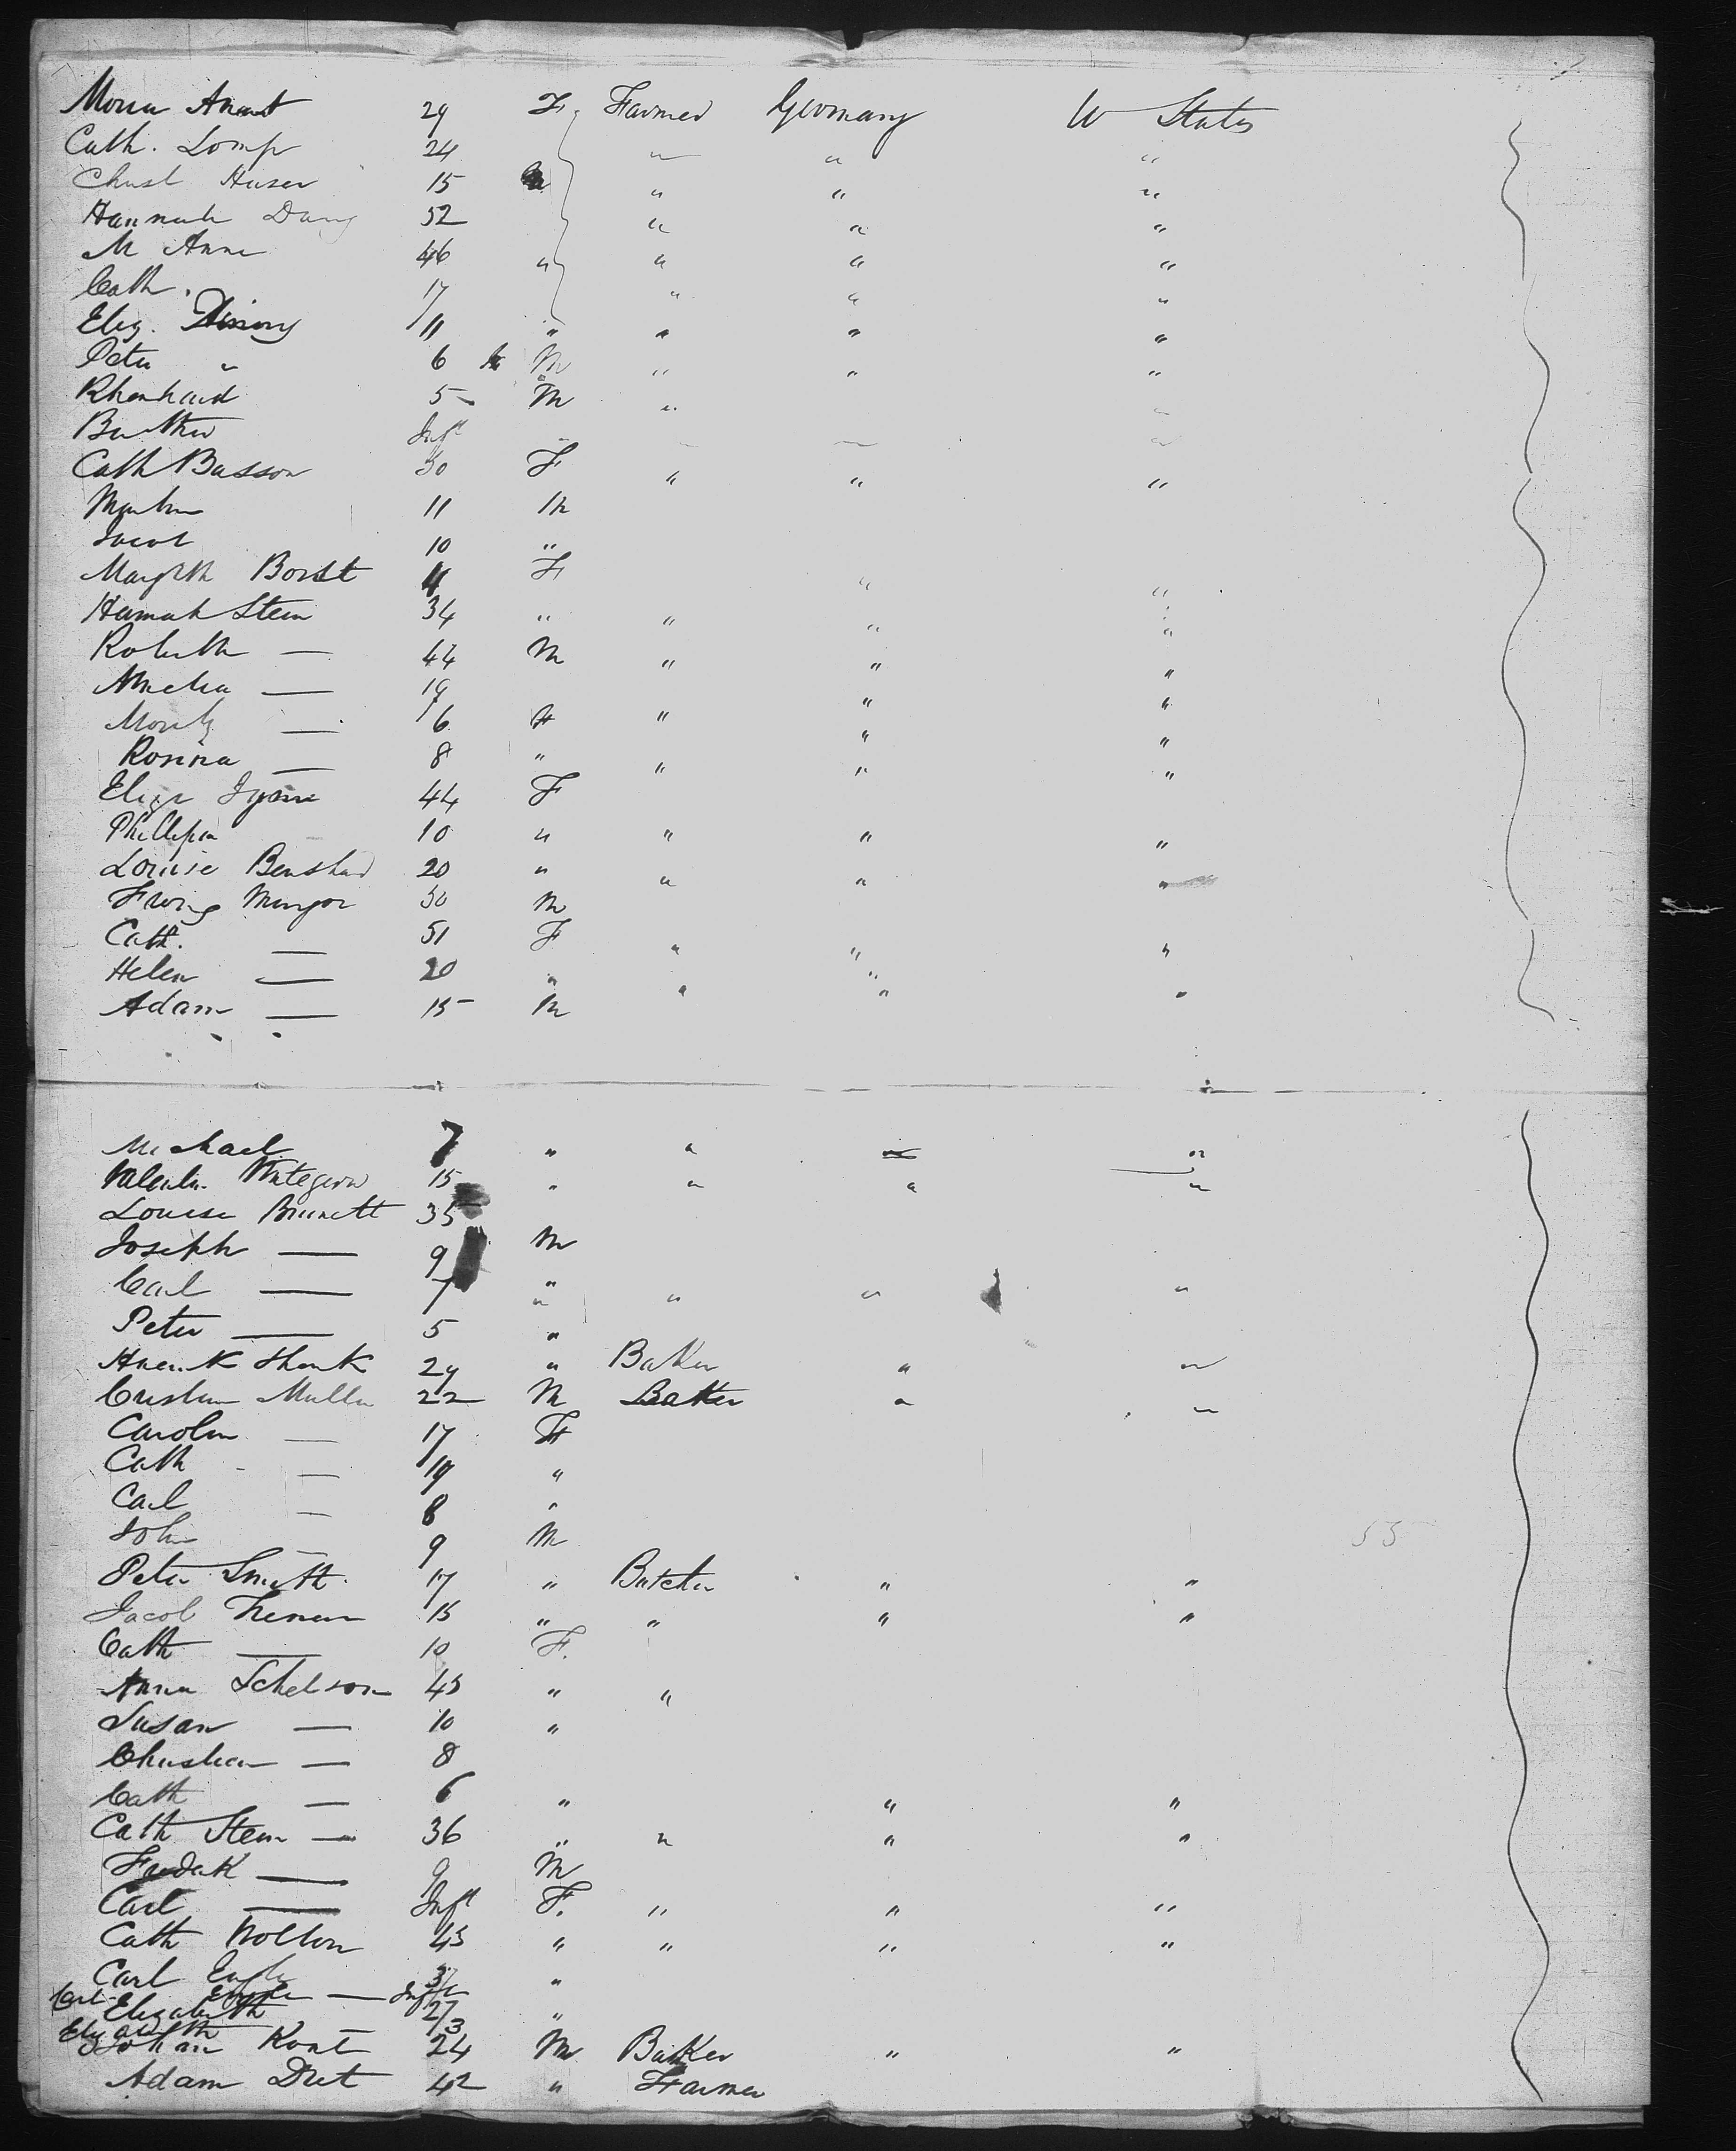 Maria 29 F Farmer Germany U States
Cath. Lomp 24 " " "
Christ Huser 15 " " "
Hannah Dany 52 " " "
M Anne 46 " " " "
Cath. 17 " " "
Eliz. 11 " " " "
Peter " 6 M " " "
Rhenhard 5 M " "
Inft " " " "
Cath Basson 30 F " " "
Martin 11 M
Jacob 10 "
Margrth Borst 4 F " "
Hannah Stein 34 " " " "
Roberth — 44 M " " "
Amelia — 19 " "
Moritz — 6 F " " "
Rosina — 8 " " " "
Eliza 44 F
Phillipia 10 " " " "
Louise Benshard 20 " " " "
Franz 30 M
Cath. — 51 F " " "
Helen — 20 " " " "
Adam — 15 M
Michael 7 " " " "
15 " " " "
Louise Brunett 35
Joseph — 9 M
Carl — 7 " " " "
Peter — 5 "
Shenk 29 " Baker " "
Cristian Muller 22 M Baker " "
Carolin — 17 F
Cath — 19 "
Carl — 8 "
John — 9 M 55
Peter Smith 17 " Butcher " "
Jacob 15 " " " "
Cath — 10 F.
Anna Schelson 45 " "
Susan — 10 "
Christian — 8
Cath — 6 " " "
Cath Stein — 36 " " " "
Fredak — 9 M
Carl — Inft F. " " "
Cath Wolton 45 " " " "
Carl Engle 3/ "
Carl Engle — Inft
Elizabeth 2/3 "
Elizabeth
Johan Kont 24 M Baker " "
Adam Diet 42 " Farmer